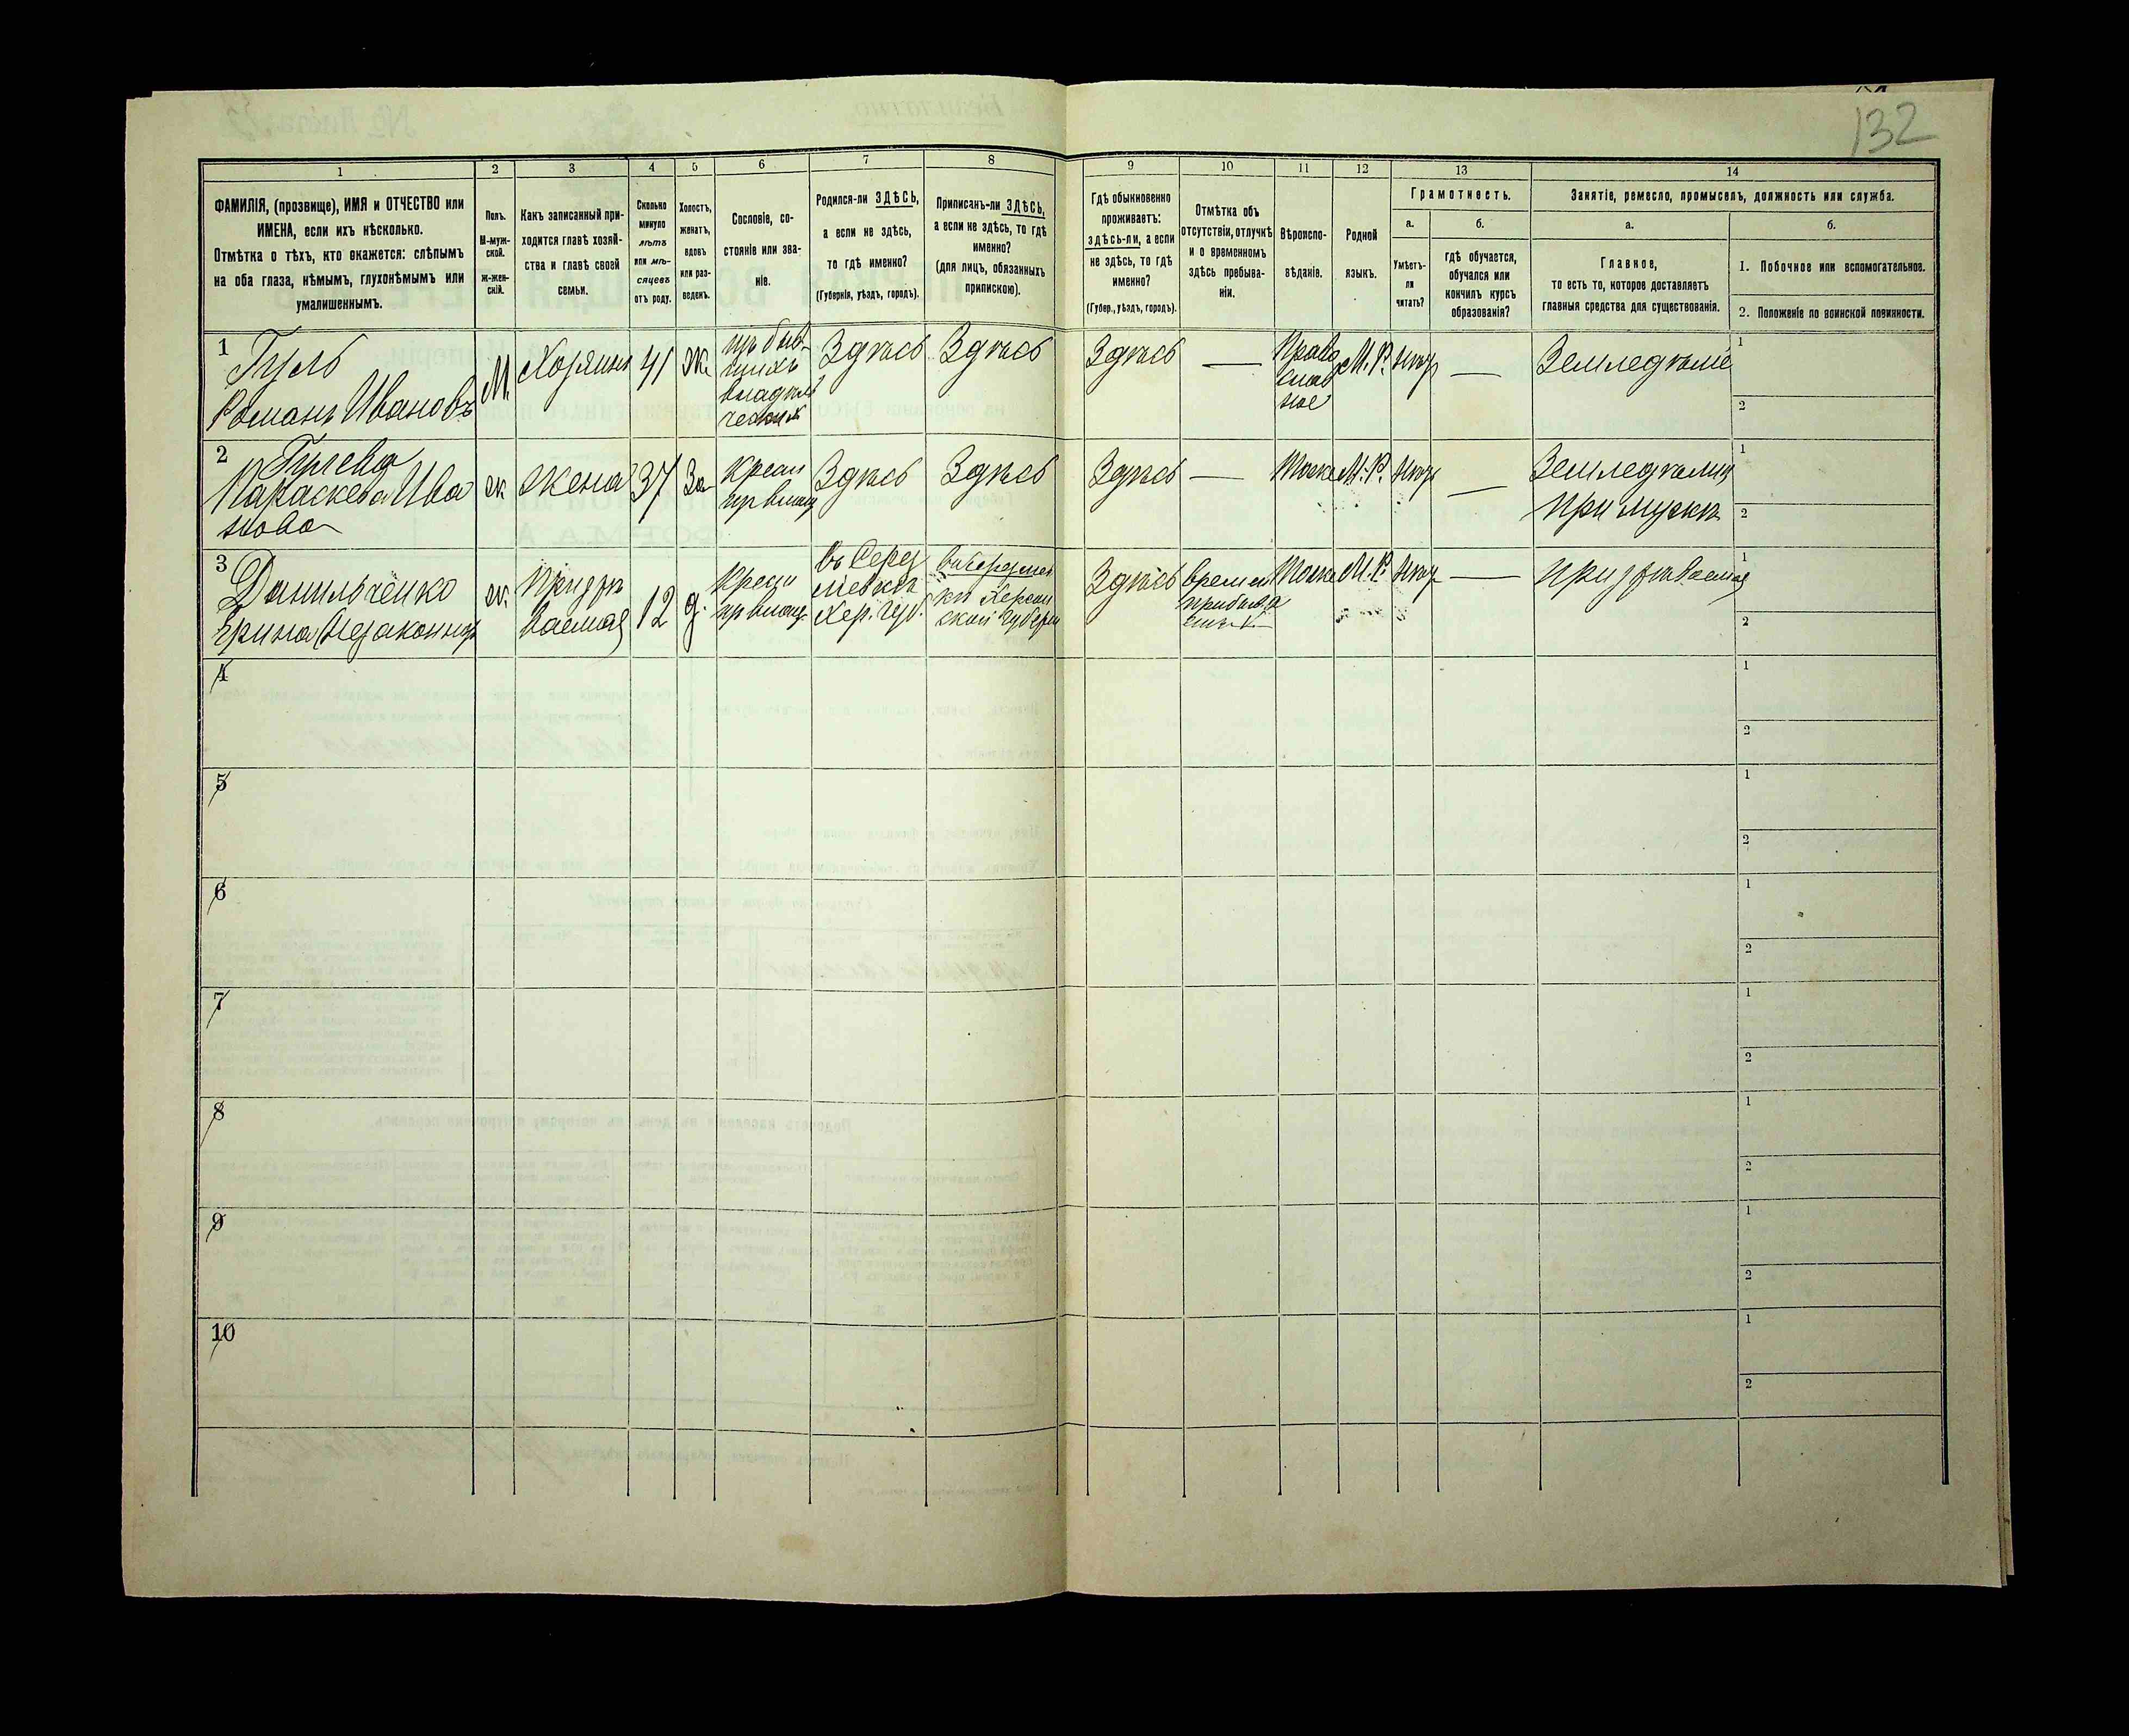 132
1 2 3 4 5 6 7 8 9 10 11 12 13 14
ФАМИЛІЯ, (прозвище), ИМЯ и ОТЧЕСТВО или
ИМЕНА, если ихъ нѣсколько.
Отмѣтка о тѣхъ, кто окажется: слѣпымъ
на оба глаза, нѣмымъ, глухонѣмымъ или
умалишеннымъ.
Полъ.
М-муж-
ской.
ж-жен-
скій.
Какъ записанный при-
ходится главѣ хозяй-
ства и главѣ своей
семьи.
Сколько
минуло
лѣтъ
или мѣ-
сяцевъ
отъ роду.
Холостъ,
женатъ,
вдовъ
или раз-
веденъ.
Сословіе, со-
стояніе или зва-
ніе.
Родился-ли ЗДѢСЬ,
а если не здѣсь,
то гдѣ именно?
(Губернія, уѣздъ, городъ).
Приписанъ-ли ЗДѢСЬ,
а если не здѣсь, то гдѣ
именно?
(для лицъ, обязанныхъ
припискою).
Гдѣ обыкновенно
проживаетъ:
здѣсь-ли, а если
не здѣсь, то гдѣ
именно?
(Губер., уѣздъ, городъ).
Отмѣтка объ
отсутствіи, отлучкѣ
и о временномъ
здѣсь пребыва-
ніи.
Вѣроиспо-
вѣданіе.
Родной
языкъ.
Грамотность.
а.
Умѣетъ-
ли
читать?
б.
гдѣ обучается,
обучался или
кончилъ курсъ
образованія?
Занятіе, ремесло, промыселъ, должность или служба.
а.
Главное,
то есть то, которое доставляетъ
главныя средства для существованія.
б.
1. Побочное или вспомогательное.
2. Положеніе по воинской повинности.
1
Гуль
Романъ Ивановъ
М.
Хозяинъ
41
Ж.
изъ быв
шихъ
владѣль
ческих
Здѣсь
Здѣсь
Здѣсь
—
Право
слав
ное
М.Р.
нѣт
—
Земледѣліе
1
2
2
Гулева
Параскева Ива
нова
ж
жена
37
За
Крест
Здѣсь
Здѣсь
Здѣсь
—
Тоже
М.Р.
нѣт
—
Земледѣлия
при мужѣ
1
2
3
Данильченко
(Незаконнор
ж.
Призрѣ
ваемая
12
д.
Крест
Хер. губ.
Херсон
ской Губерн
Здѣсь
Времен
прибыв
Тоже
М.Р.
нѣт
—
призрѣваемая
1
2
4
1
2
5
1
2
6
1
2
7
1
2
8
1
2
9
1
2
10
1
2